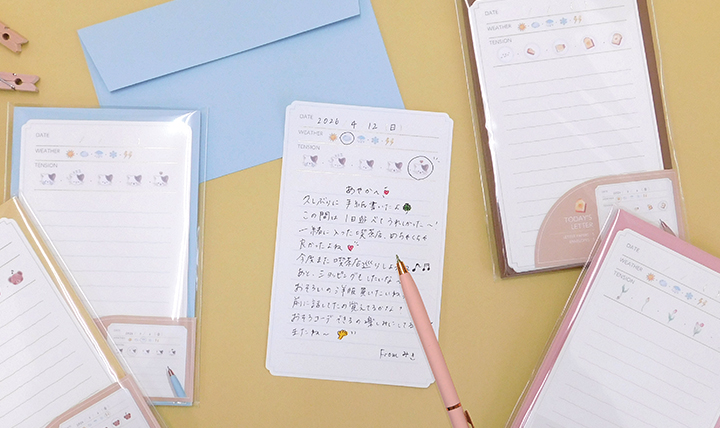 DATE 2026 4 12 日
WEATHER
TENSION
あやかへ
久しぶりに手紙書いたよ
この間は1日遊べてうれしかった〜!
一緒に入った喫茶店、めちゃくちゃ
良かったよね
今度また喫茶店巡りしよ
あと、ショッピングもしたいな
おそろいの洋服買いたいね
前に話してたの覚えてるかな
おそろコーデできるの楽しみにしてる
またね〜
From みき
DATE
WEATHER
TENSION
DATE
WEATHER
TENSION
TODAY'S
LETTER
DATE
WEATHER
TENSION